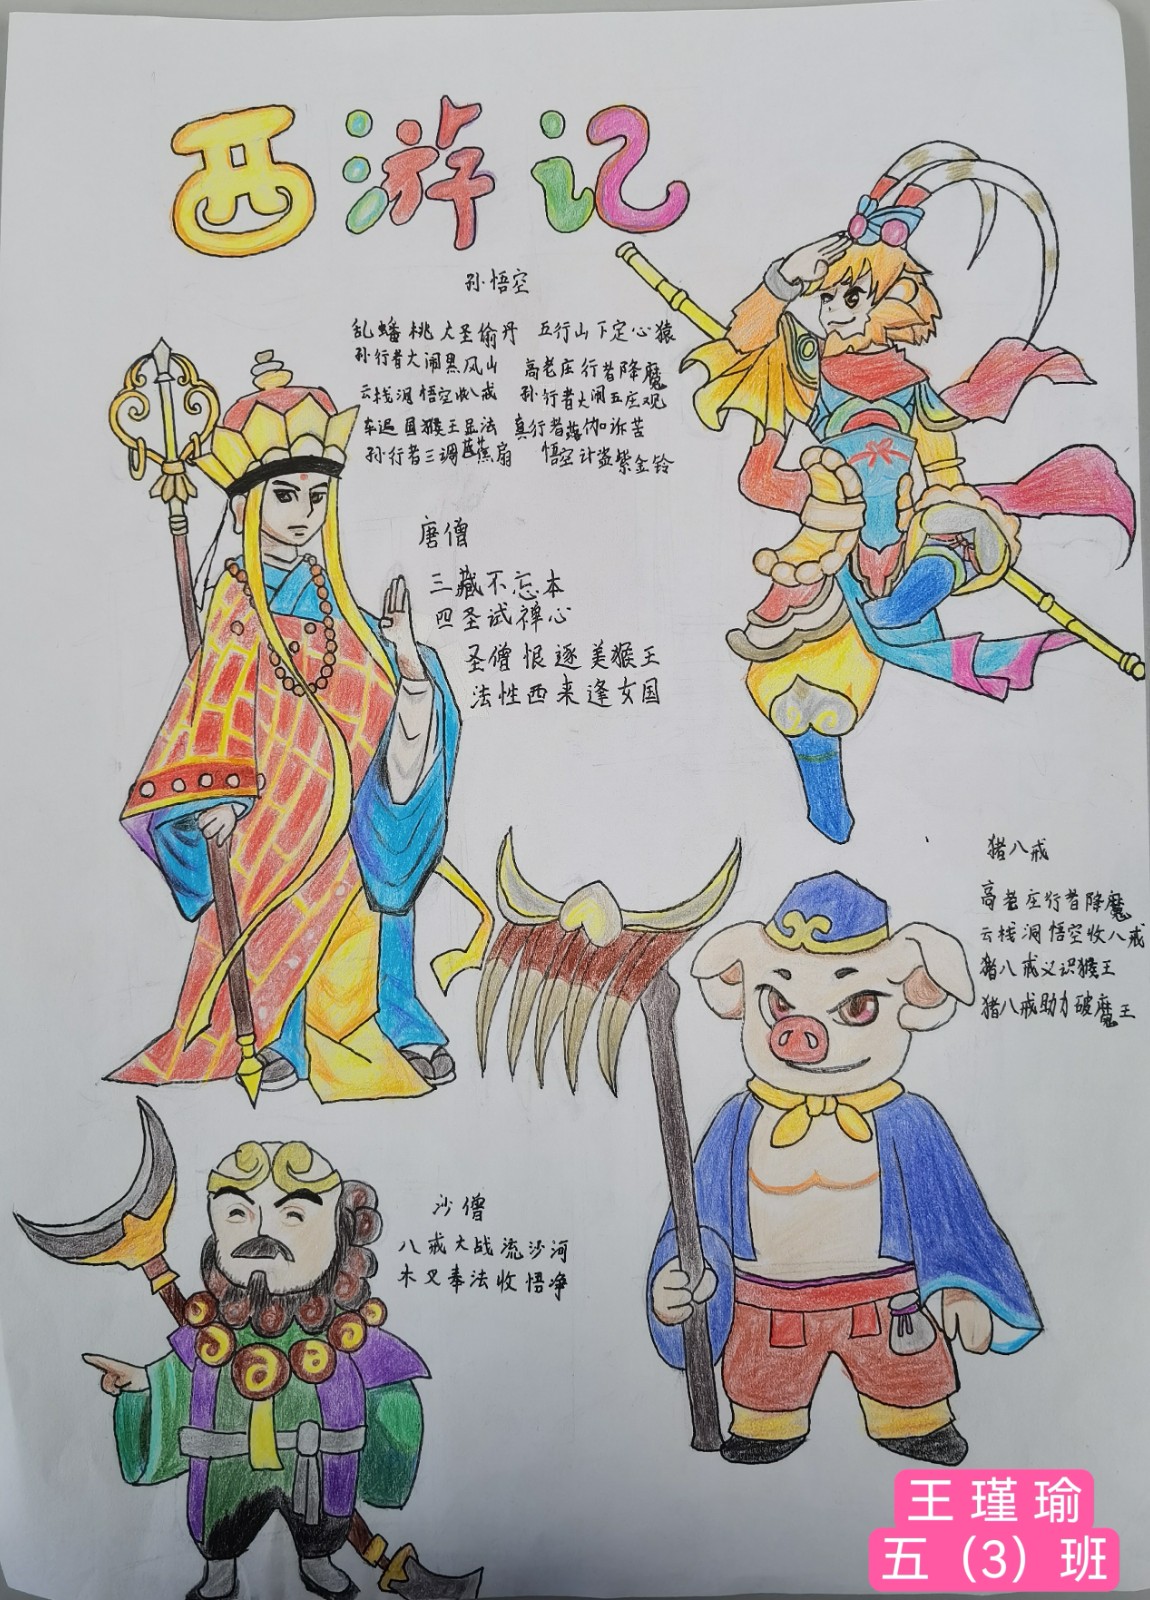 西游记
孙悟空
乱蟠桃大圣偷丹 五行山下定心猿
孙行者大闹黑风山 高老庄行者降魔
云栈洞悟空收八戒 孙行者大闹五庄观
车迟国猴王显法 真行者落伽诉苦
孙行者三调芭蕉扇 悟空计盗紫金铃
唐僧
三藏不忘本
四圣试禅心
圣僧恨逐美猴王
法性西来逢女国
猪八戒
高老庄行者降魔
云栈洞悟空收八戒
猪八戒义识猴王
猪八戒助力破魔王
沙僧
八戒大战流沙河
木叉奉法收悟净
王瑾瑜
五（3）班